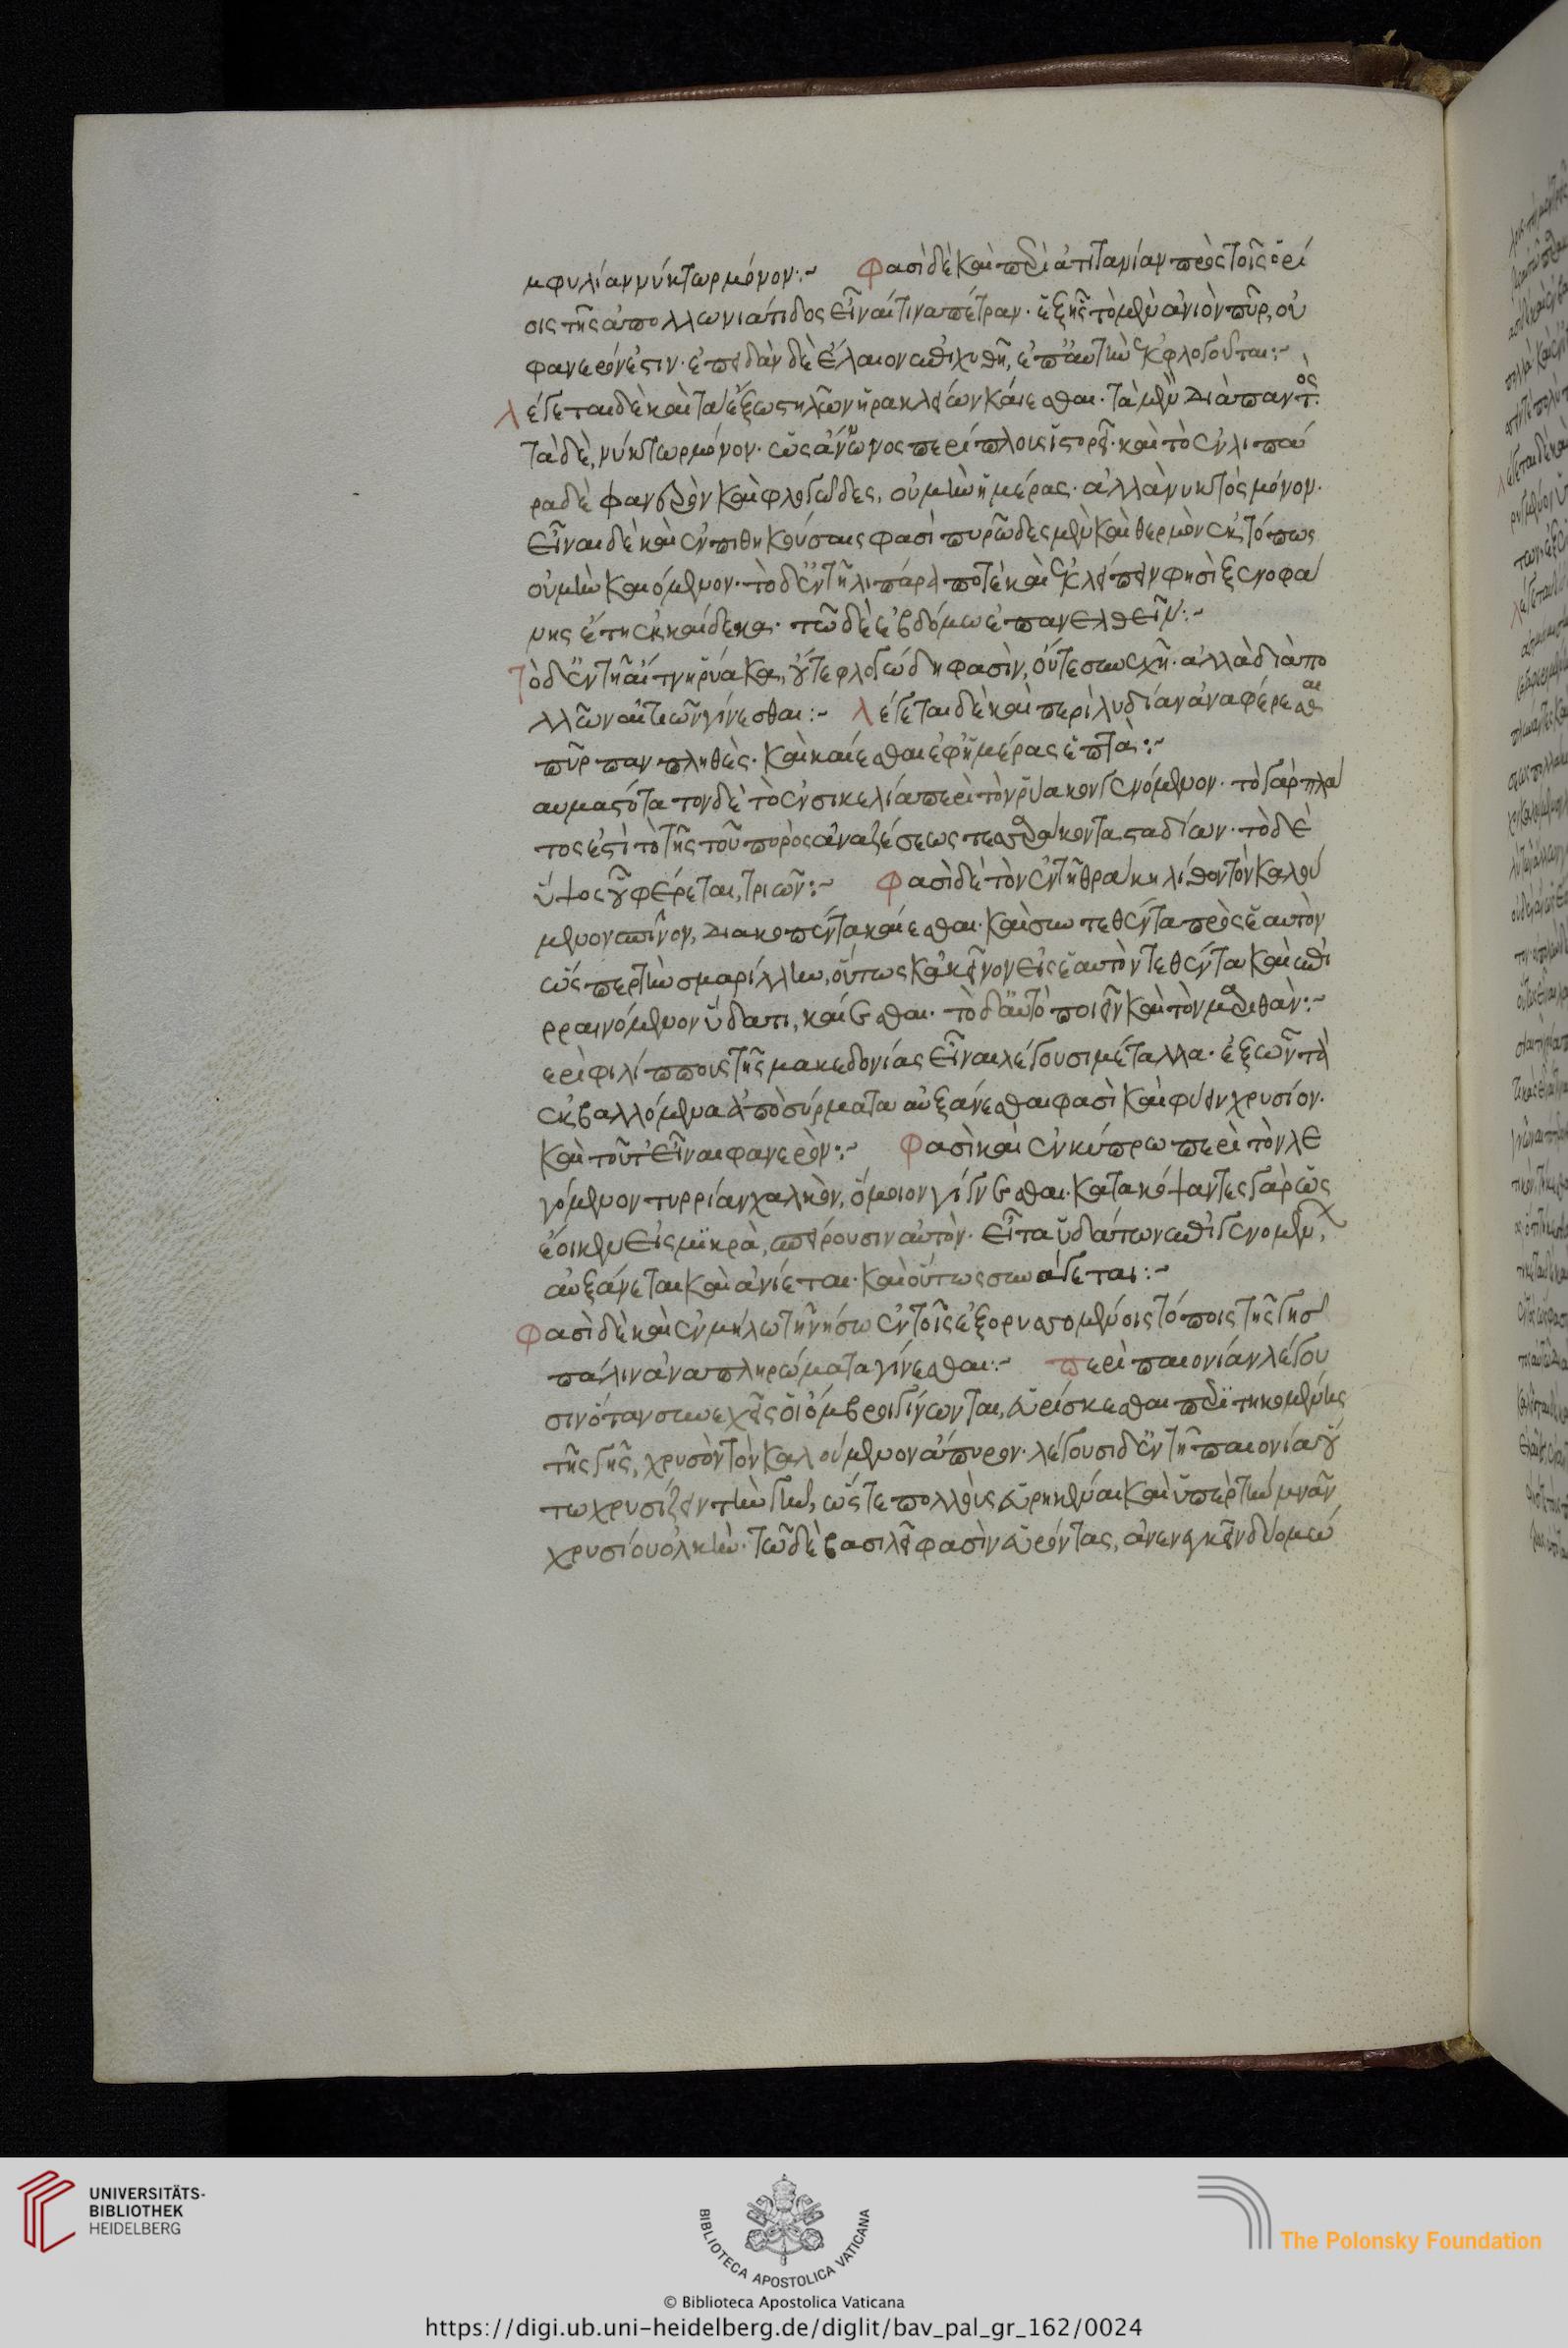 μφυλίαν νύκτωρ μόνον:~ Φασὶ δὲ καὶ περὶ ἀτιτανίαν πρὸς τοῖς ὁρί
σις τῆς ἀπολλωνιάτιδος εἶναί τινα πέτραν· ἐξ ἧς τὸ μὲν ἀνιὸν πῦρ, οὐ
φανερόν ἐστιν· ἐπειδὰν δὲ ἔλαιον ἐπιχυθῆ, ἐπ' αὐτὴν ἐκφλογοῦται:~
λέγεται δὲ καὶ τὰ ἔξω στηλῶν ἡρακλείων κάιεσθαι· τὰ μὲν διὰ παντὸς.
τὰ δὲ, νύκτωρ μόνον· ὡς ἄννωνος περίπλους ἱστορεῖ· καὶ τὸ ἐν λιπά
ρα δὲ φανερὸν καὶ φλογῶδες, οὐ μὴν ἡμέρας· ἀλλὰ νυκτὸς μόνον.
Εἶναι δὲ καὶ ἐν πιθηκούσαις φασὶ πυρῶδες μὲν καὶ θερμὸν ἐκτόπως
οὐ μὴν καιόμενον· τὸ δ' ἐν τῆ λιπάρα ποτὲ καὶ ἐκλείπειν φησὶ ξενοφά
νης ἔτη ἐκκαίδεκα· τῶ δὲ ἑβδόμω ἐπανελθεῖν:~
Τὸ δ' ἐν τῆ αἴτνη ῥύακα, οὔτε φλογώδη φασὶν, οὔτε συνεχῆ· ἀλλὰ διὰ πο
λλῶν αἰτιῶν γίνεσθαι:~ Λέγεται δὲ καὶ περὶ λυδίαν ἀναφέρεσθαι
πῦρ πανπληθὲς· καὶ καίεσθαι ἐφ' ἡμέρας ἑπτὰ:~
αυμαστότατον δὲ τὸ ἐν σικελία περὶ τὸν ῥύακα γενόμενον· τὸ γὰρ πλά
τος ἐστὶ τὸ τῆς τοῦ πυρὸς ἀναζέσεως τεσσαράκοντα σταδίων· τὸ δὲ
ὕψος οὗ φέρεται, τριῶν:~ Φασὶ δὲ τὸν ἐν τῆ θράκη λίθον τὸν καλού
μενον σπῖνον, διακοπέντα καίεσθαι· καὶ συντεθέντα πρὸς ἑαυτὸν
ὥσπερ τὴν σμαρίλλην, οὕτως κἀκεῖνον εἰς ἑαυτὸν τεθέντα καὶ ἐπι
ρραινόμενον ὕδατι, καίεσθαι· τὸ δ' αὐτὸ ποιεῖν καὶ τὸν μαριθὰν:~
ερὶ φιλίππους τῆς μακεδονίας εἶναι λέγουσι μέταλλα· ἐξ ὧν τὰ
ἐκβαλλόμενα ἀποσύρματα αὐξάνεσθαι φασὶ καὶ φύειν χρυσίον.
καὶ τοῦτ' εἶναι φανερὸν:~ Φασὶ καὶ ἐν κύπρω περὶ τὸν λε
γόμενον τυρρίαν χαλκὸν, ὅμοιον γίγνεσθαι· κατακόψαντες γὰρ ὡς
ἔοικεν εἰς μικρὰ, σπείρουσιν αὐτὸν· εἶτα ὑδάτων ἐπιγενομένων,
αὐξάνεται καὶ ἀνίεται· καὶ οὕτως συνάγεται:~
Φασὶ δὲ καὶ ἐν μήλω τῆ νήσω ἐν τοῖς ἐξορυσσομένοις τόποις τῆς γῆς
πάλιν ἀναπληρώματα γίνεσθαι:~ Περὶ παιονίαν λέγου
σιν ὅταν συνεχεῖς οἱ ὄμβροι γίνωνται, εὑρίσκεσθαι περιτηκομένης
τῆς γῆς, χρυσὸν τὸν καλούμενον ἄπυρον· λέγουσι δ' ἐν τῆ παιονία οὕ
τω χρυσίζειν τὴν γῆν, ὥστε πολλοὺς εὑρηκέναι καὶ ὑπὲρ τὴν μνᾶν
χρυσίου ὁλκὴν· τῶ δὲ βασιλεῖ φασὶν εὑρόντας, ἀνενεγκεῖν δύο μώ
UNIVERSITÄTS-
BIBLIOTHEK
HEIDELBERG
BIBLIOTECA APOSTOLICA VATICANA
The Polonsky Foundation
© Biblioteca Apostolica Vaticana
https://digi.ub.uni-heidelberg.de/diglit/bav_pal_gr_162/0024